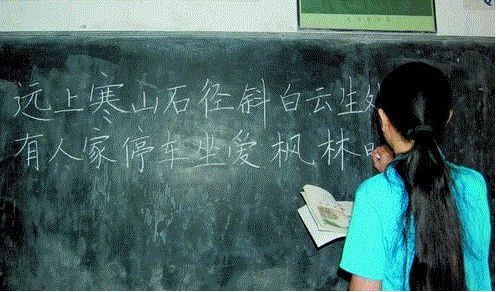 远上寒山石径斜白云生处
有人家停车坐爱枫林